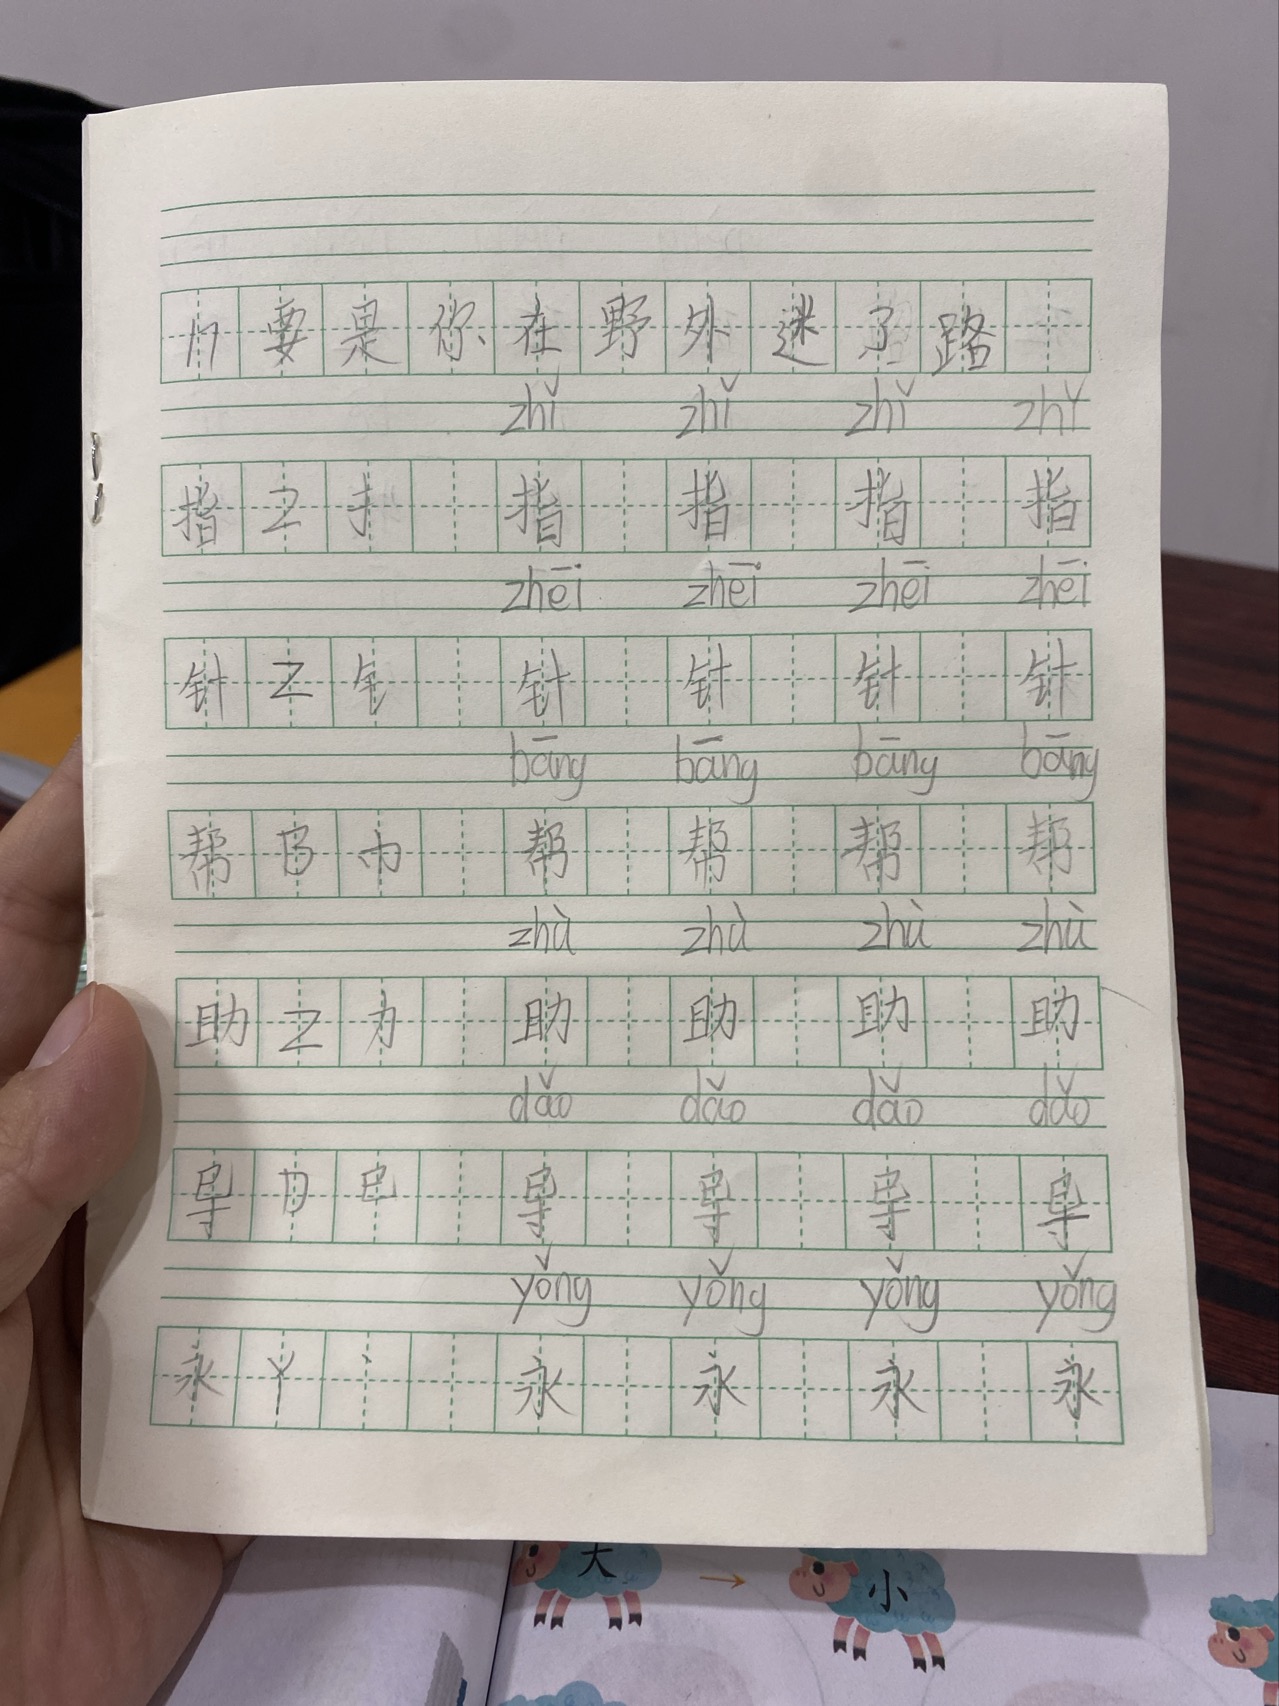 17 要是你在野外迷了路
zhǐ zhǐ zhǐ zhǐ
指 Z 扌 指 指 指 指
zhēi zhēi zhēi zhēi
针 Z 钅 针 针 针 针
bāng bāng bāng bāng
帮 B 巾 帮 帮 帮 帮
zhù zhù zhù zhù
助 Z 力 助 助 助 助
dǎo dǎo dǎo dǎo
yǒng yǒng yǒng yǒng
永 Y 丶 永 永 永 永
大 → 小